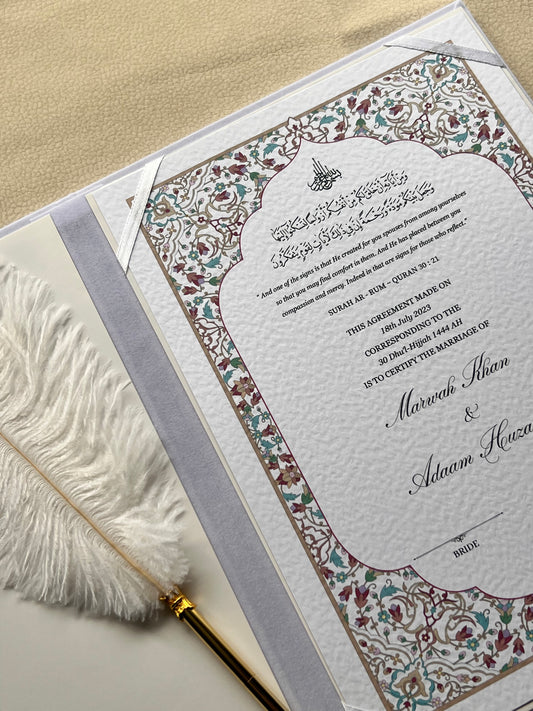 وَمِنْ آيَاتِهِ أَنْ خَلَقَ لَكُم مِّنْ أَنفُسِكُمْ أَزْوَاجًا لِّتَسْكُنُوا إِلَيْهَا
وَجَعَلَ بَيْنَكُم مَّوَدَّةً وَرَحْمَةً إِنَّ فِي ذَٰلِكَ لَآيَاتٍ لِّقَوْمٍ يَتَفَكَّرُونَ
" And one of the signs is that He created for you spouses from among yourselves
so that you may find comfort in them. And He has placed between you
compassion and mercy. Indeed in that are signs for those who reflect."
SURAH AR - RUM ~ QURAN 30 : 21
THIS AGREEMENT MADE ON
18th July 2023
CORRESPONDING TO THE
30 Dhu'l-Hijjah 1444 AH
IS TO CERTIFY THE MARRIAGE OF
Marwah Khan
&
Adaam
BRIDE